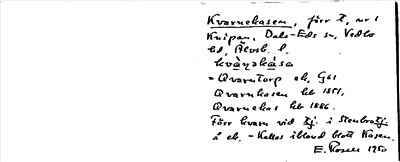 Kvarnekasen, förr t, nr 1
Knipan, Dals-Eds sn, Vedbo
hd, Älvsb. l.
= Qvarntorp ek, G61
Qvarnkasen hb 1851,
Qvarnekas hb 1886.
Förr kvarn vid tj. i Stenbrotj.
å ek. - Kallas ibland blott Kasen.
E. Rosell 1950